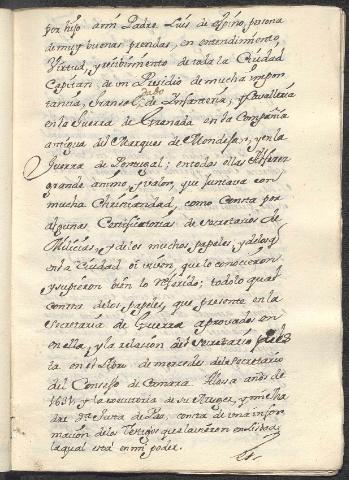 por hijo a mi Padre Luis de Espino, persona
de muy buenas prendas, en entendimiento,
Virtud, y recibimiento de toda la Ciudad
Capitan de un Presidio de mucha impor
tancia, de Infanteria, y Cavalleria
en la Guerra de Granada en la Compañia
antigua del Marques de Mondejar, y en la
Guerra de Portugal; en todas ellas Alferez
grande animo, y valor, que juntava con
mucha Christiandad, como consta por
algunas Certificatorias de Secretarios de
Milicias, y de los muchos papeles, y
en la Ciudad oi viven, que lo conocieron
y supieron bien lo referido; todo lo qual
consta de los papeles, que presente en la
Secretaria de Guerra aprovados en
en ella, y la relacion del Secretario
ta en el libro de mercedes de la Secretario
del Consejo de Camara años de
1631, y la executoria de su Muger, y
Junta de consta de una infor
macion de los Testigos que
la qual está en mi poder.